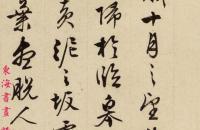 歲十月之望
歸於臨皋
黃泥之坂
葉盡脫人
東海書畫